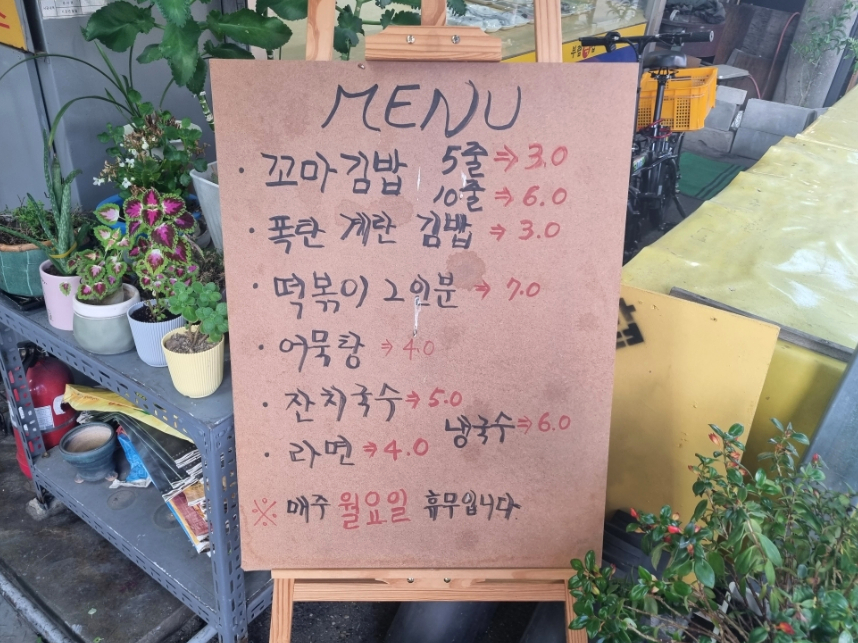 MENU
· 꼬마김밥 5줄 ⇒ 3.0
10줄 ⇒ 6.0
· 폭탄 계란 김밥 ⇒ 3.0
· 떡볶이 2인분 ⇒ 7.0
· 어묵탕 ⇒ 4.0
· 잔치국수 ⇒ 5.0
냉국수 ⇒ 6.0
· 라면 ⇒ 4.0
※ 매주 월요일 휴무입니다